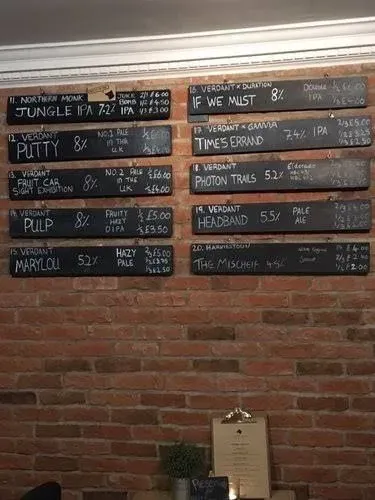 11. NORTHERN MONK
JUNGLE IPA 7.2%
JUNGLE BOMB IPA
2/3 £6.00
1/2 £4.50
1/3 £3.00
12. VERDANT
PUTTY 8%
NO.1 PALE
IN THE
U.K
£6.00
£4.00
13. VERDANT
FRUIT CAR
SIGHT EXHIBITION 8%
NO.2 PALE
IN THE
U.K
£6.00
£4.00
14. VERDANT
PULP 8%
FRUITY
HAZY
DIPA
1/2 £5.00
1/3 £3.50
15. VERDANT
MARYLOU 5.2%
HAZY
PALE
2/3 £5.00
1/2 £3.75
1/3 £2.50
16. VERDANT x DURATION
IF WE MUST 8%
DOUBLE
IPA
£6.00
£4.00
17. VERDANT x GAMMA
TIME'S ERRAND 7.4% IPA
£5.00
18. VERDANT
PHOTON TRAILS 5.2%
19. VERDANT
HEADBAND 5.5%
PALE
ALE
20. HARVIESTOUN
THE MISCHEIF
£4.00
2/3 £3.00
1/3 £2.00
RESERVED